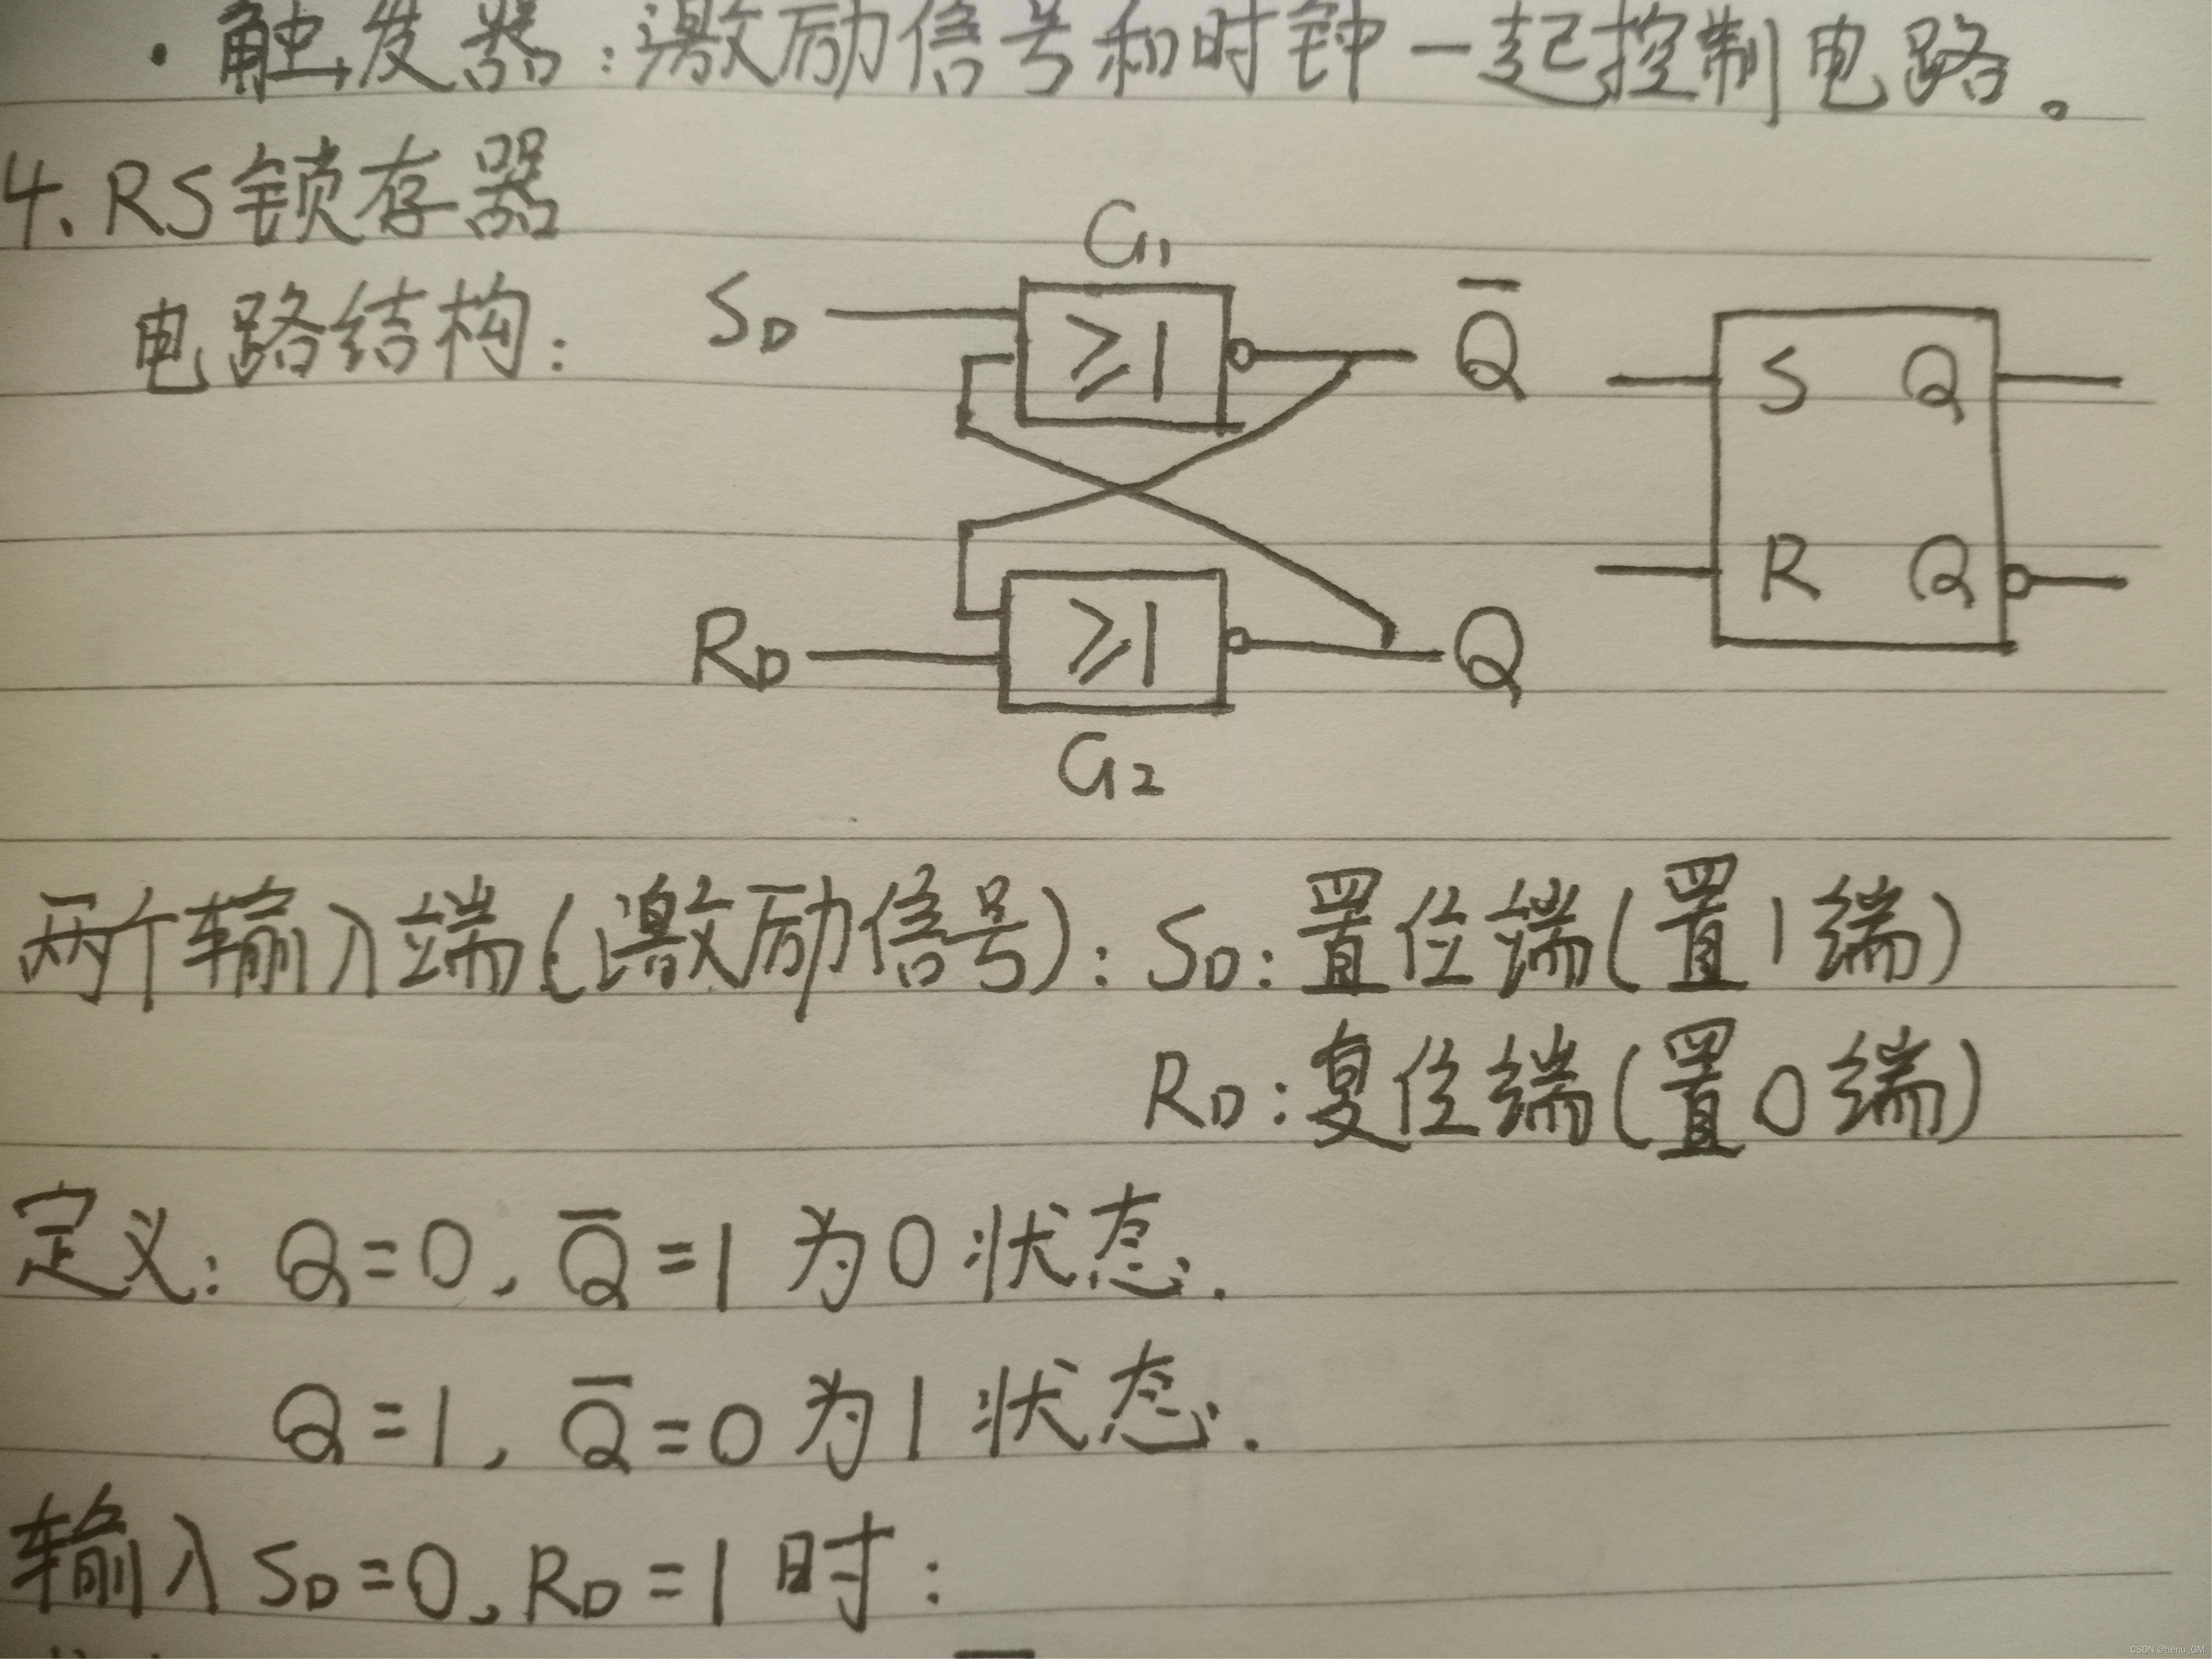 · 触发器：激励信号和时钟一起控制电路。
4、RS锁存器
G1
电路结构：
SD ≥1 Q̅
S Q
R Q
RD ≥1 Q
G2
两个输入端(激励信号)：SD：置位端(置1端)
RD：复位端(置0端)
定义：Q=0, Q̅=1 为0状态.
Q=1, Q̅=0 为1状态.
输入SD=0, RD=1 时：
CSDN @henu_GM